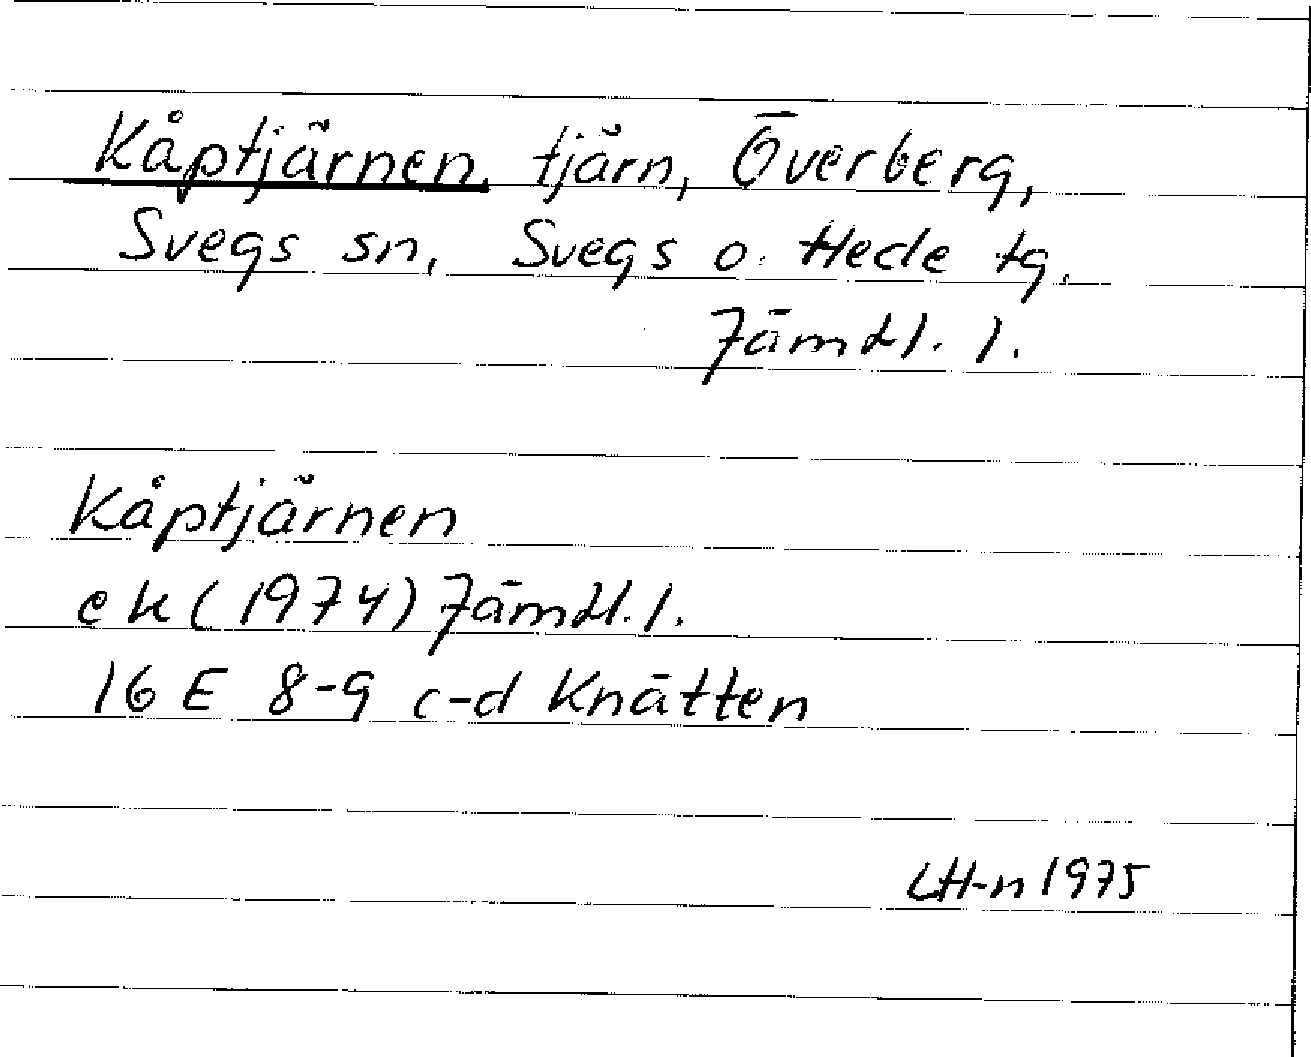 Kåptjärnen, tjärn, Överberg,
Svegs sn, Svegs o. Hede tg.
Jämtl. l.
Kåptjärnen
ek (1974) Jämtl. l.
16 E 8-9 c-d Knätten
LH-n 1975